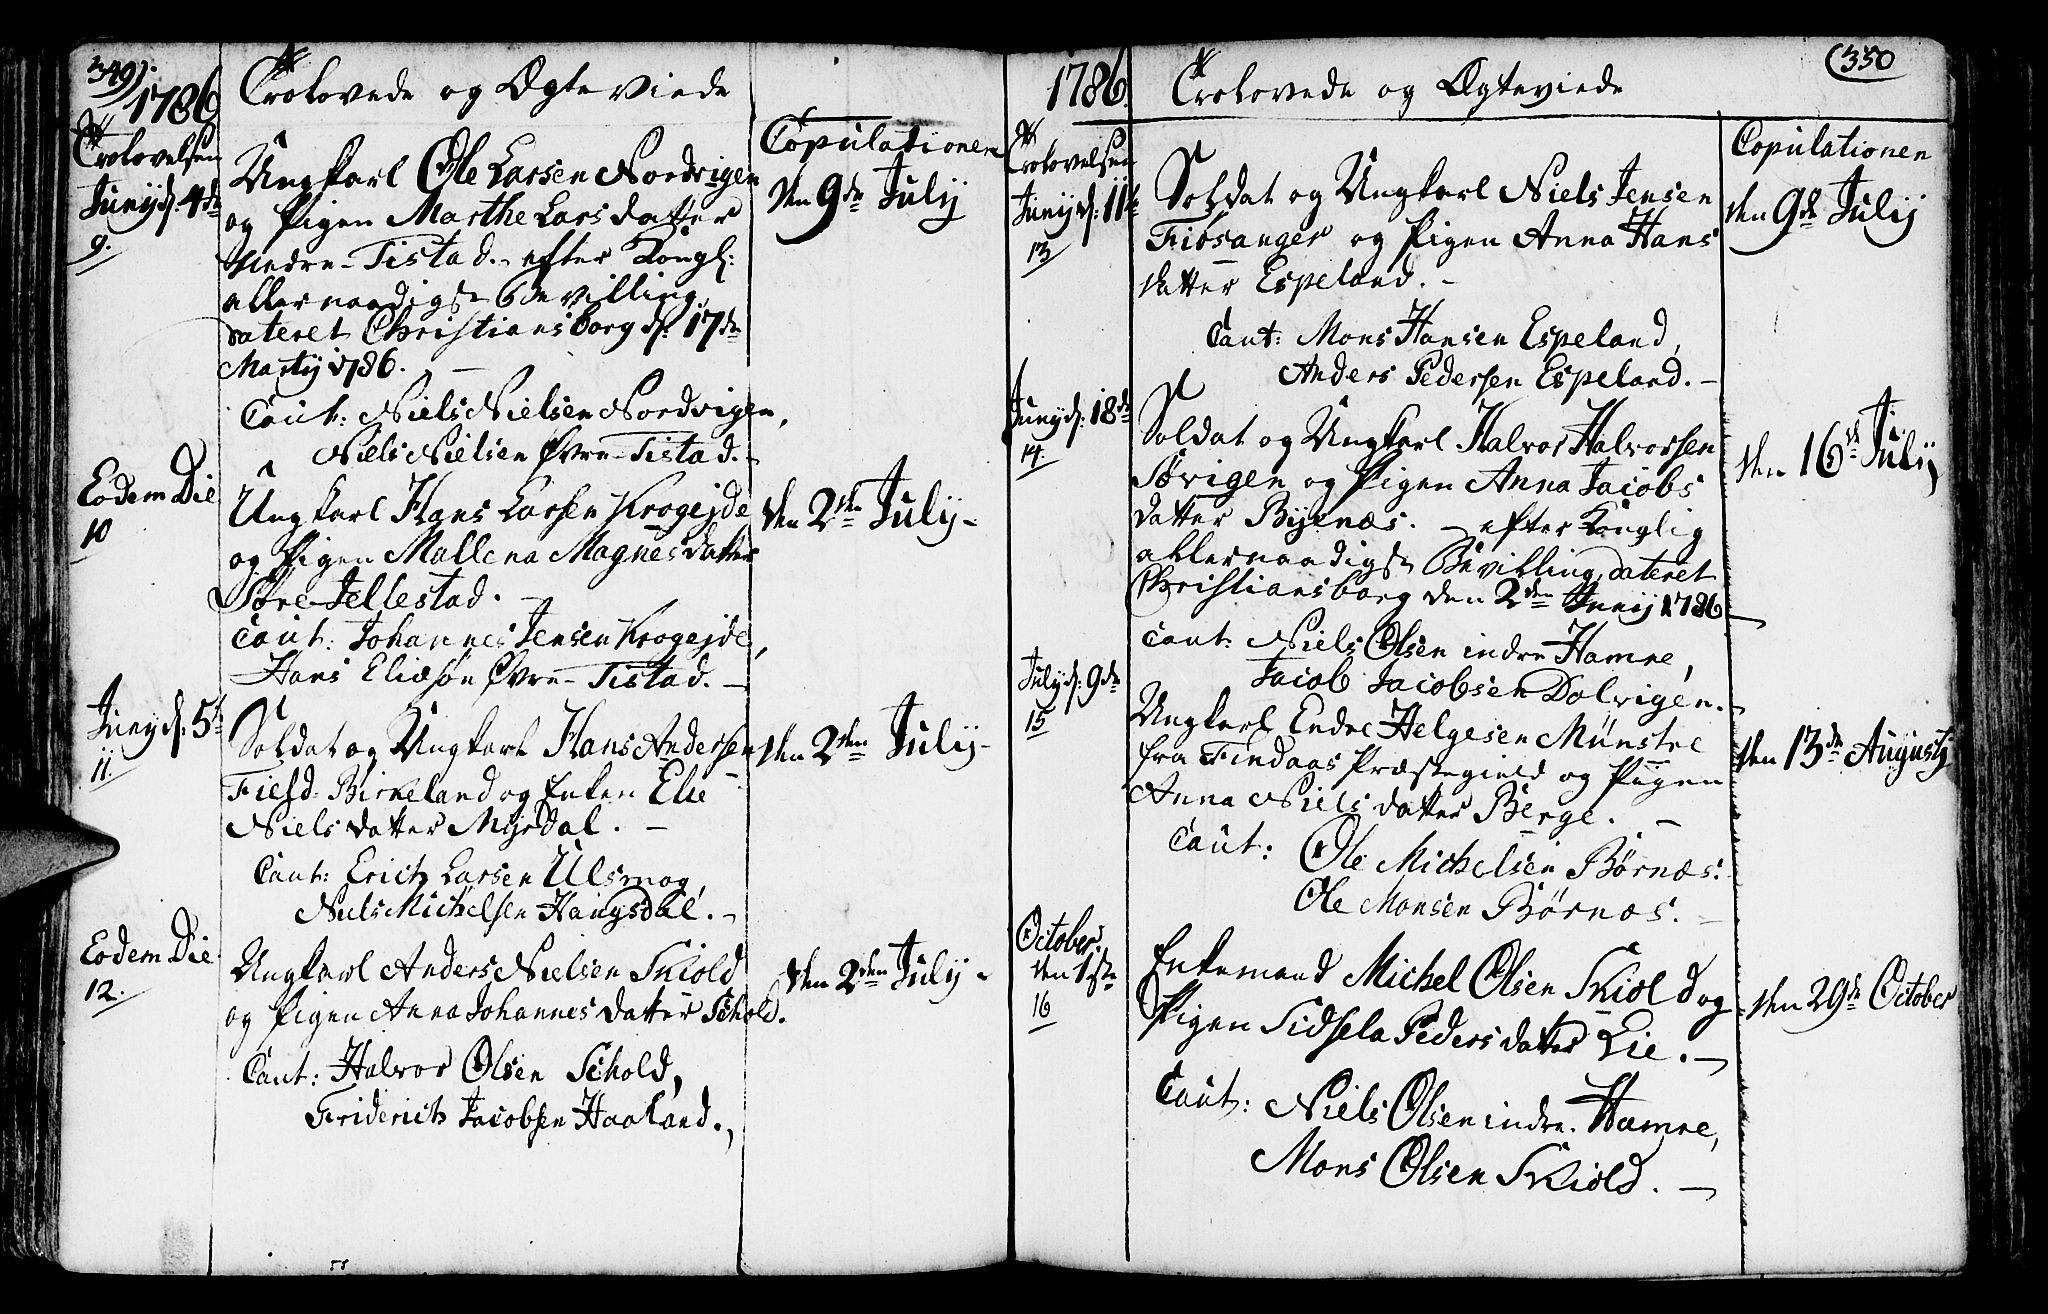 349).
1786
Trolovede og Ægteviede
Trolovelsen
Copulationen
Junij d: 4de
9.
Ungkarl Ole Larsen Nordvigen
og Pigen Marthe Larsdatter
Nedre-Tistad. efter Kongl:
allernaadigst Bevilling,
dateret Christiansborg d: 17de
Martij 1786.
den 9de Julij
Caut: Niels Nielsen Nordvigen,
Niels Nielsen Øvre-Tistad.
Eodem Die
10
Ungkarl Hans Larsen Krogejde
og Pigen Mallena Magnesdatter
Søre-Jellestad.
den 2den Julij
Caut: Johannes Jensen Krogejde,
Hans Eliesøn Øvre-Tistad.
Junij d: 5te
11.
Soldat og Ungkarl Hans Andersen
Field-Birkeland og Enken Else
Niels datter Myrdal.
den 2den Julij
Caut: Erich Larsen Ulsmog,
Niels Michelsen Haugsdal.
Eodem Die
12.
Ungkarl Anders Nielsen Skiold
og Pigen Anna Johannesdatter Schold.
den 2den Julij
Caut: Halvor Olsen Schold,
Friderich Jacobsen Haaland.
(350
1786.
Trolovede og Ægteviede
Trolovelsen
Copulationen
Junij d: 11te
13
Soldat og Ungkarl Niels Jensen
Fiosanger og Pigen Anna Hans
datter Espeland.
den 9de Julij
Caut: Mons Hansen Espeland,
Anders Pedersen Espeland.
Junij d: 18de
14.
Soldat og Ungkarl Halvor Halvorsen
Sørvigen og Pigen Anna Jacobs
datter Byenæs. efter Konglig
allernaadigst Bevilling, dateret
Christiansborg den 2den Junij 1786
den 16de Julij
Caut: Niels Olsen indre Hamre,
Jacob Jacobsen Dolvigen.
Julij d: 9de
15
Ungkarl Endre Helgesen Münstre
fra Findaas Præstegield og Pigen
Anna Nielsdatter Berge.
den 13de Augustij
Caut: Ole Michelsen Børnæs.
Ole Monsen Børnæs.
October.
den 1ste
16
Enkemand Michel Olsen Skiold og
Pigen Sidsela Pedersdatter Lie.
den 29de October
Caut: Niels Olsen indre Hamre,
Mons Olsen Skiold.